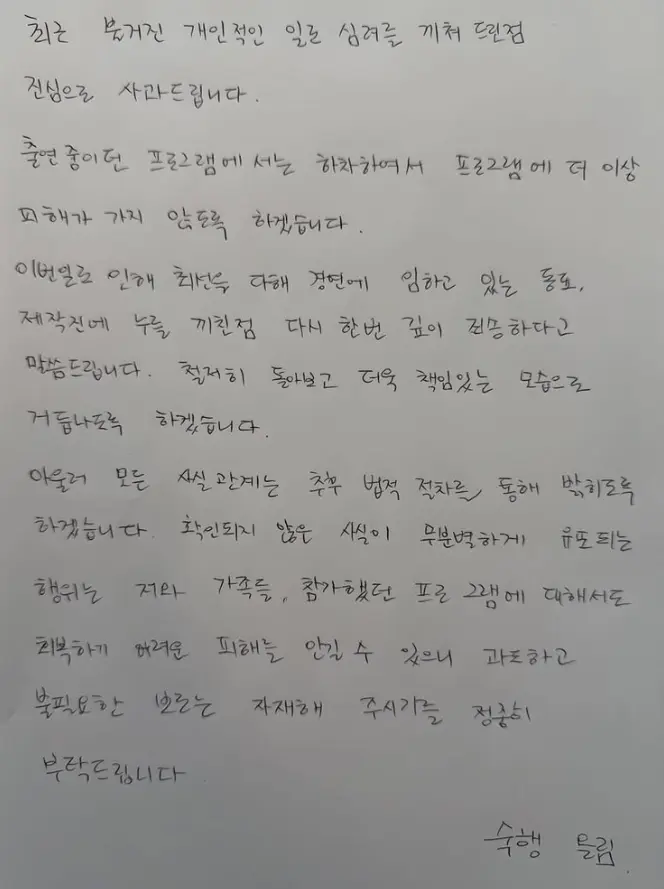 최근 붉거진 개인적인 일로 심려를 끼쳐 드린점
진심으로 사과드립니다.
출연중이던 프로그램에서는 하차하여서 프로그램에 더 이상
피해가 가지 않도록 하겠습니다.
이번일로 인해 최선을 다해 경연에 임하고 있는 동료,
제작진에 누를 끼친점 다시 한번 깊이 죄송하다고
말씀드립니다. 철저히 돌아보고 더욱 책임있는 모습으로
거듭나도록 하겠습니다.
아울러 모든 사실관계는 추후 법적 절차를 통해 밝히도록
하겠습니다. 확인되지 않은 사실이 무분별하게 유포되는
행위는 저와 가족들, 참가했던 프로그램에 대해서도
회복하기 어려운 피해를 안길 수 있으니 과도하고
불필요한 보도는 자재해 주시기를 정중히
부탁드립니다
수행 올림.